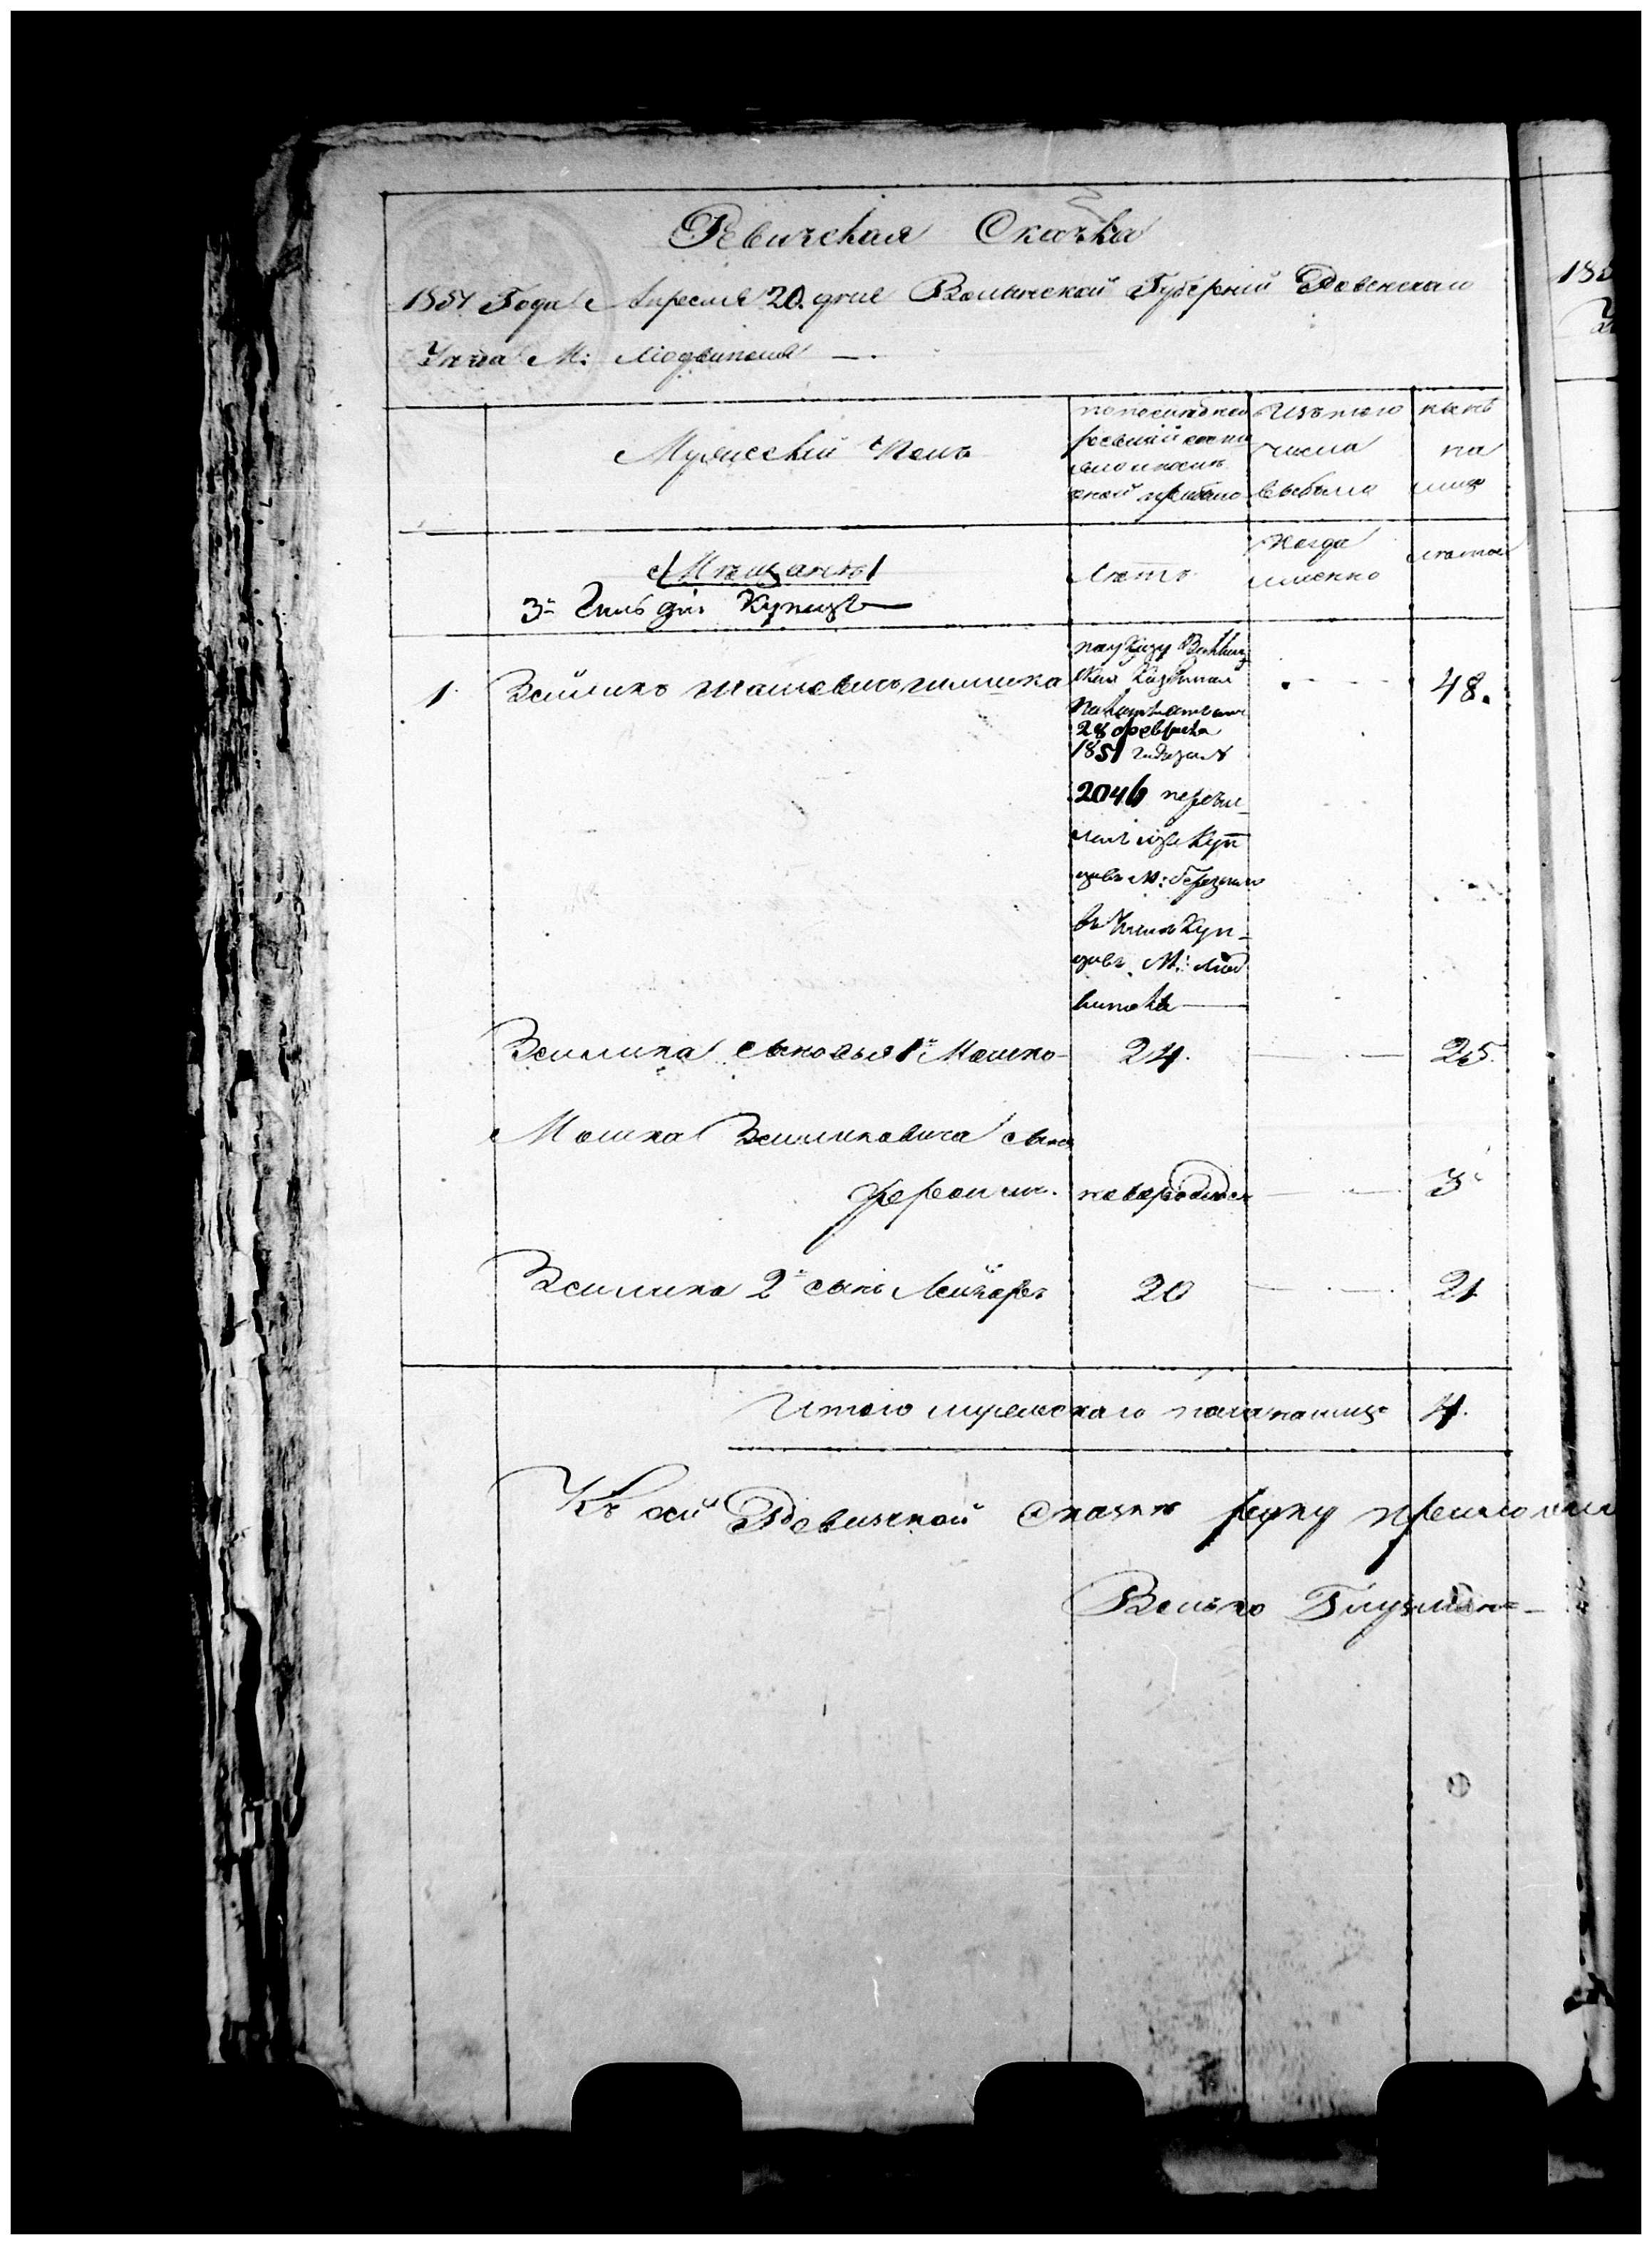 Ревизская Сказка
1851 Года Апреля 20. дня Волынской Губерніи Ровенского
Уезда М: Людвиполя —.
Мужескій Полъ
по последней ревизіи состояло и после оной прибыло
Изъ того числа выбыло
ныне на лицо
Мещане
3й Гильдіи Купецъ
Летъ
Когда именно
лета
1. Зейликъ 48.
по указу Волынской Казенной Палаты от
28 февраля
1851 года за №
2046 перечи-
слен изъ Куп
цовъ М: Березно
въ Купцовъ М: Людвиполь —
Зейлика сыновья 1й Мошко — 24. — . — 25.
Мошка Зейликовича сынъ
новорожденъ — . — 3
Зейлика 2й сынъ Лейзоръ 20 — . — 21.
Итого мужескаго пола на лицо 4.
Къ сей Ревизской Сказке руку приложил